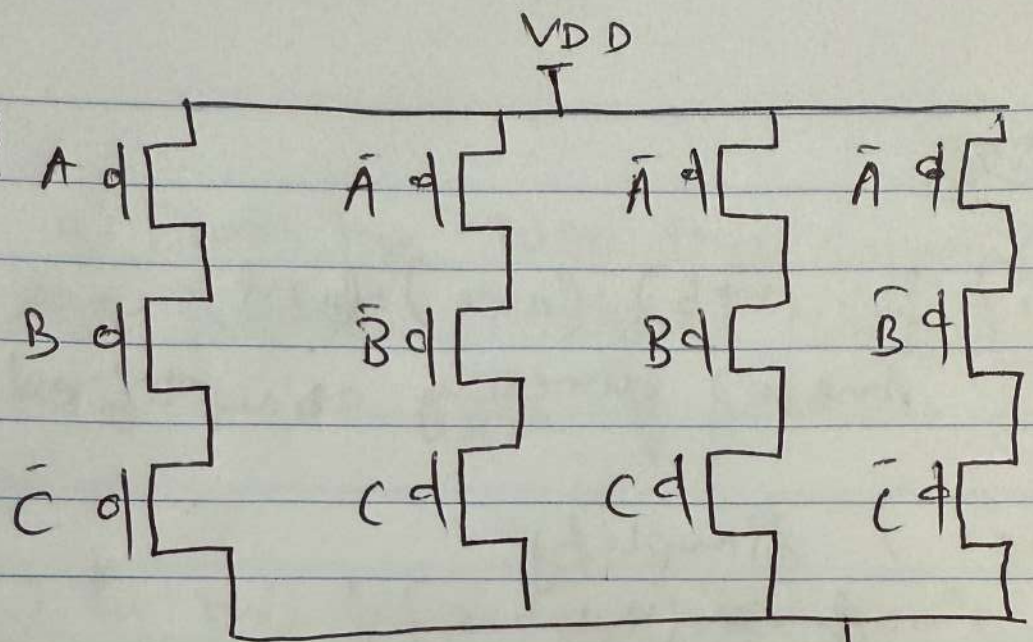 VDD
A Ā Ā Ā
B B̄ B B̄
C̄ C C C̄